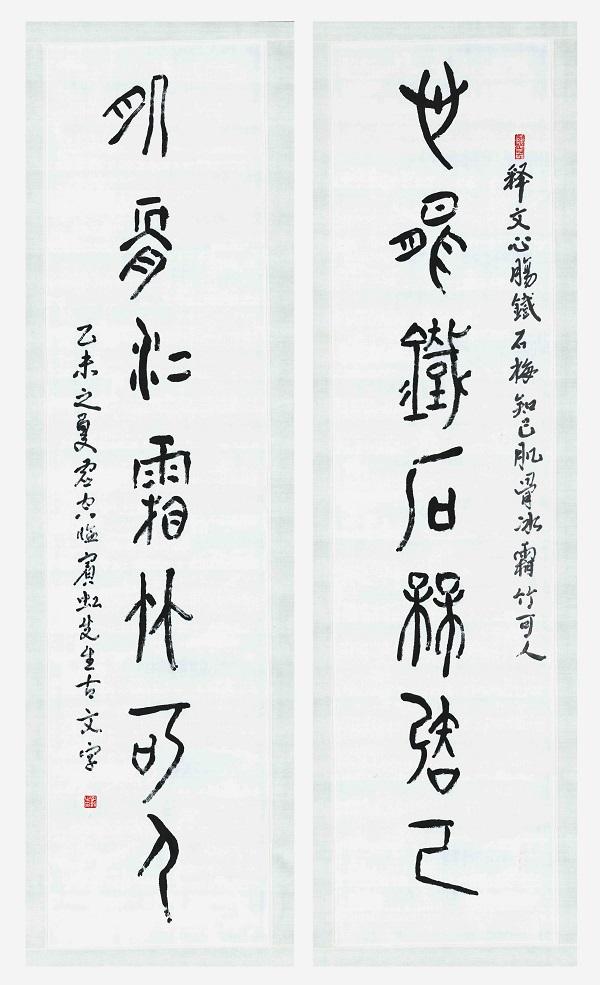 释文心腸鐵石梅知己肌骨冰霜竹可人
心腸鐵石梅知己
肌骨冰霜竹可人
乙未之夏臨賓虹先生古文字